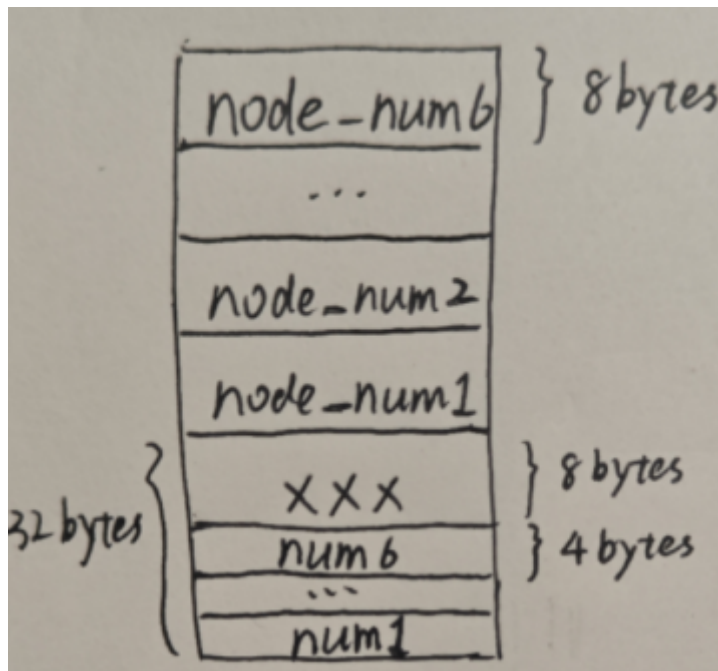 node_num6 } 8 bytes
...
node_num2
node_num1
32 bytes { XXX } 8 bytes
num6 } 4 bytes
...
num1